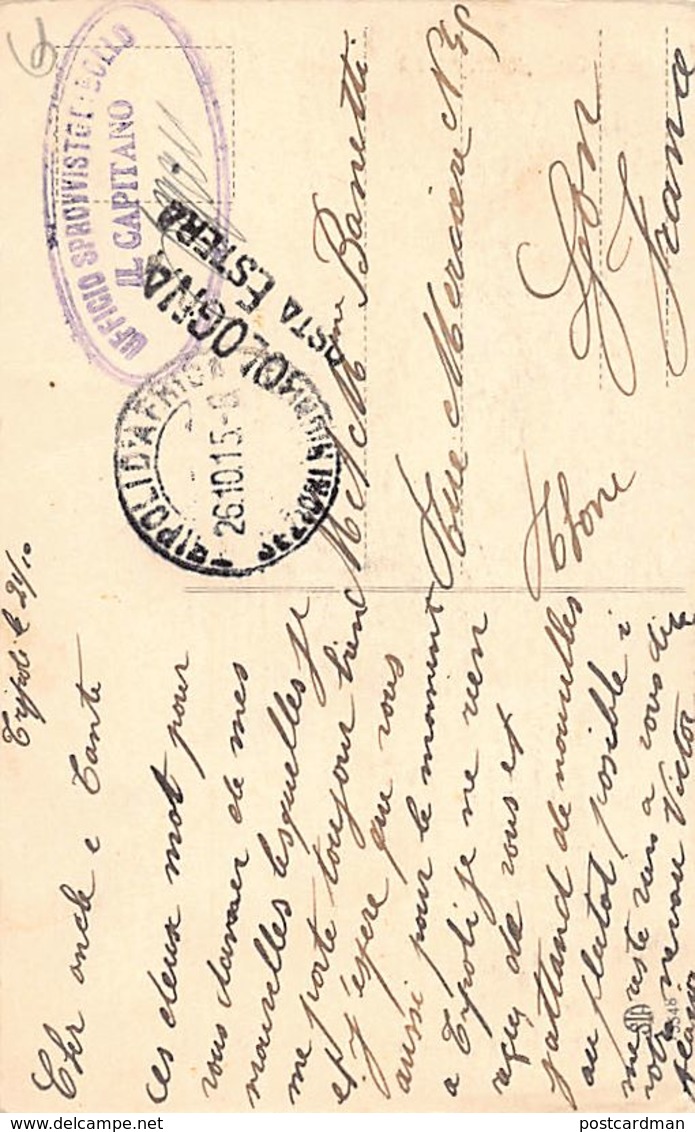 6
UFFICIO SPROVVISTO DI BOLLO
IL CAPITANO
BOLOGNA
POSTA ESTERA
TRIPOLI D'AFRICA
26.10.15.-
Tripoli le 24/10
Cher oncle e Tante
ces deux mot pour
vous donner de mes
nouvelles lesquelles je
me porte toujour bien
et j'éspere que vous
aussi pour le moment
a Tripoli je ne rien
reçu de vous et
j'attand de nouvelles
au plutot possible i
me reste rien a vous dire
votre neveu Victor
M et Mme Banetti
Rue Mercière N 45
Lyon
Rhone
France
STA
5548
postcardman